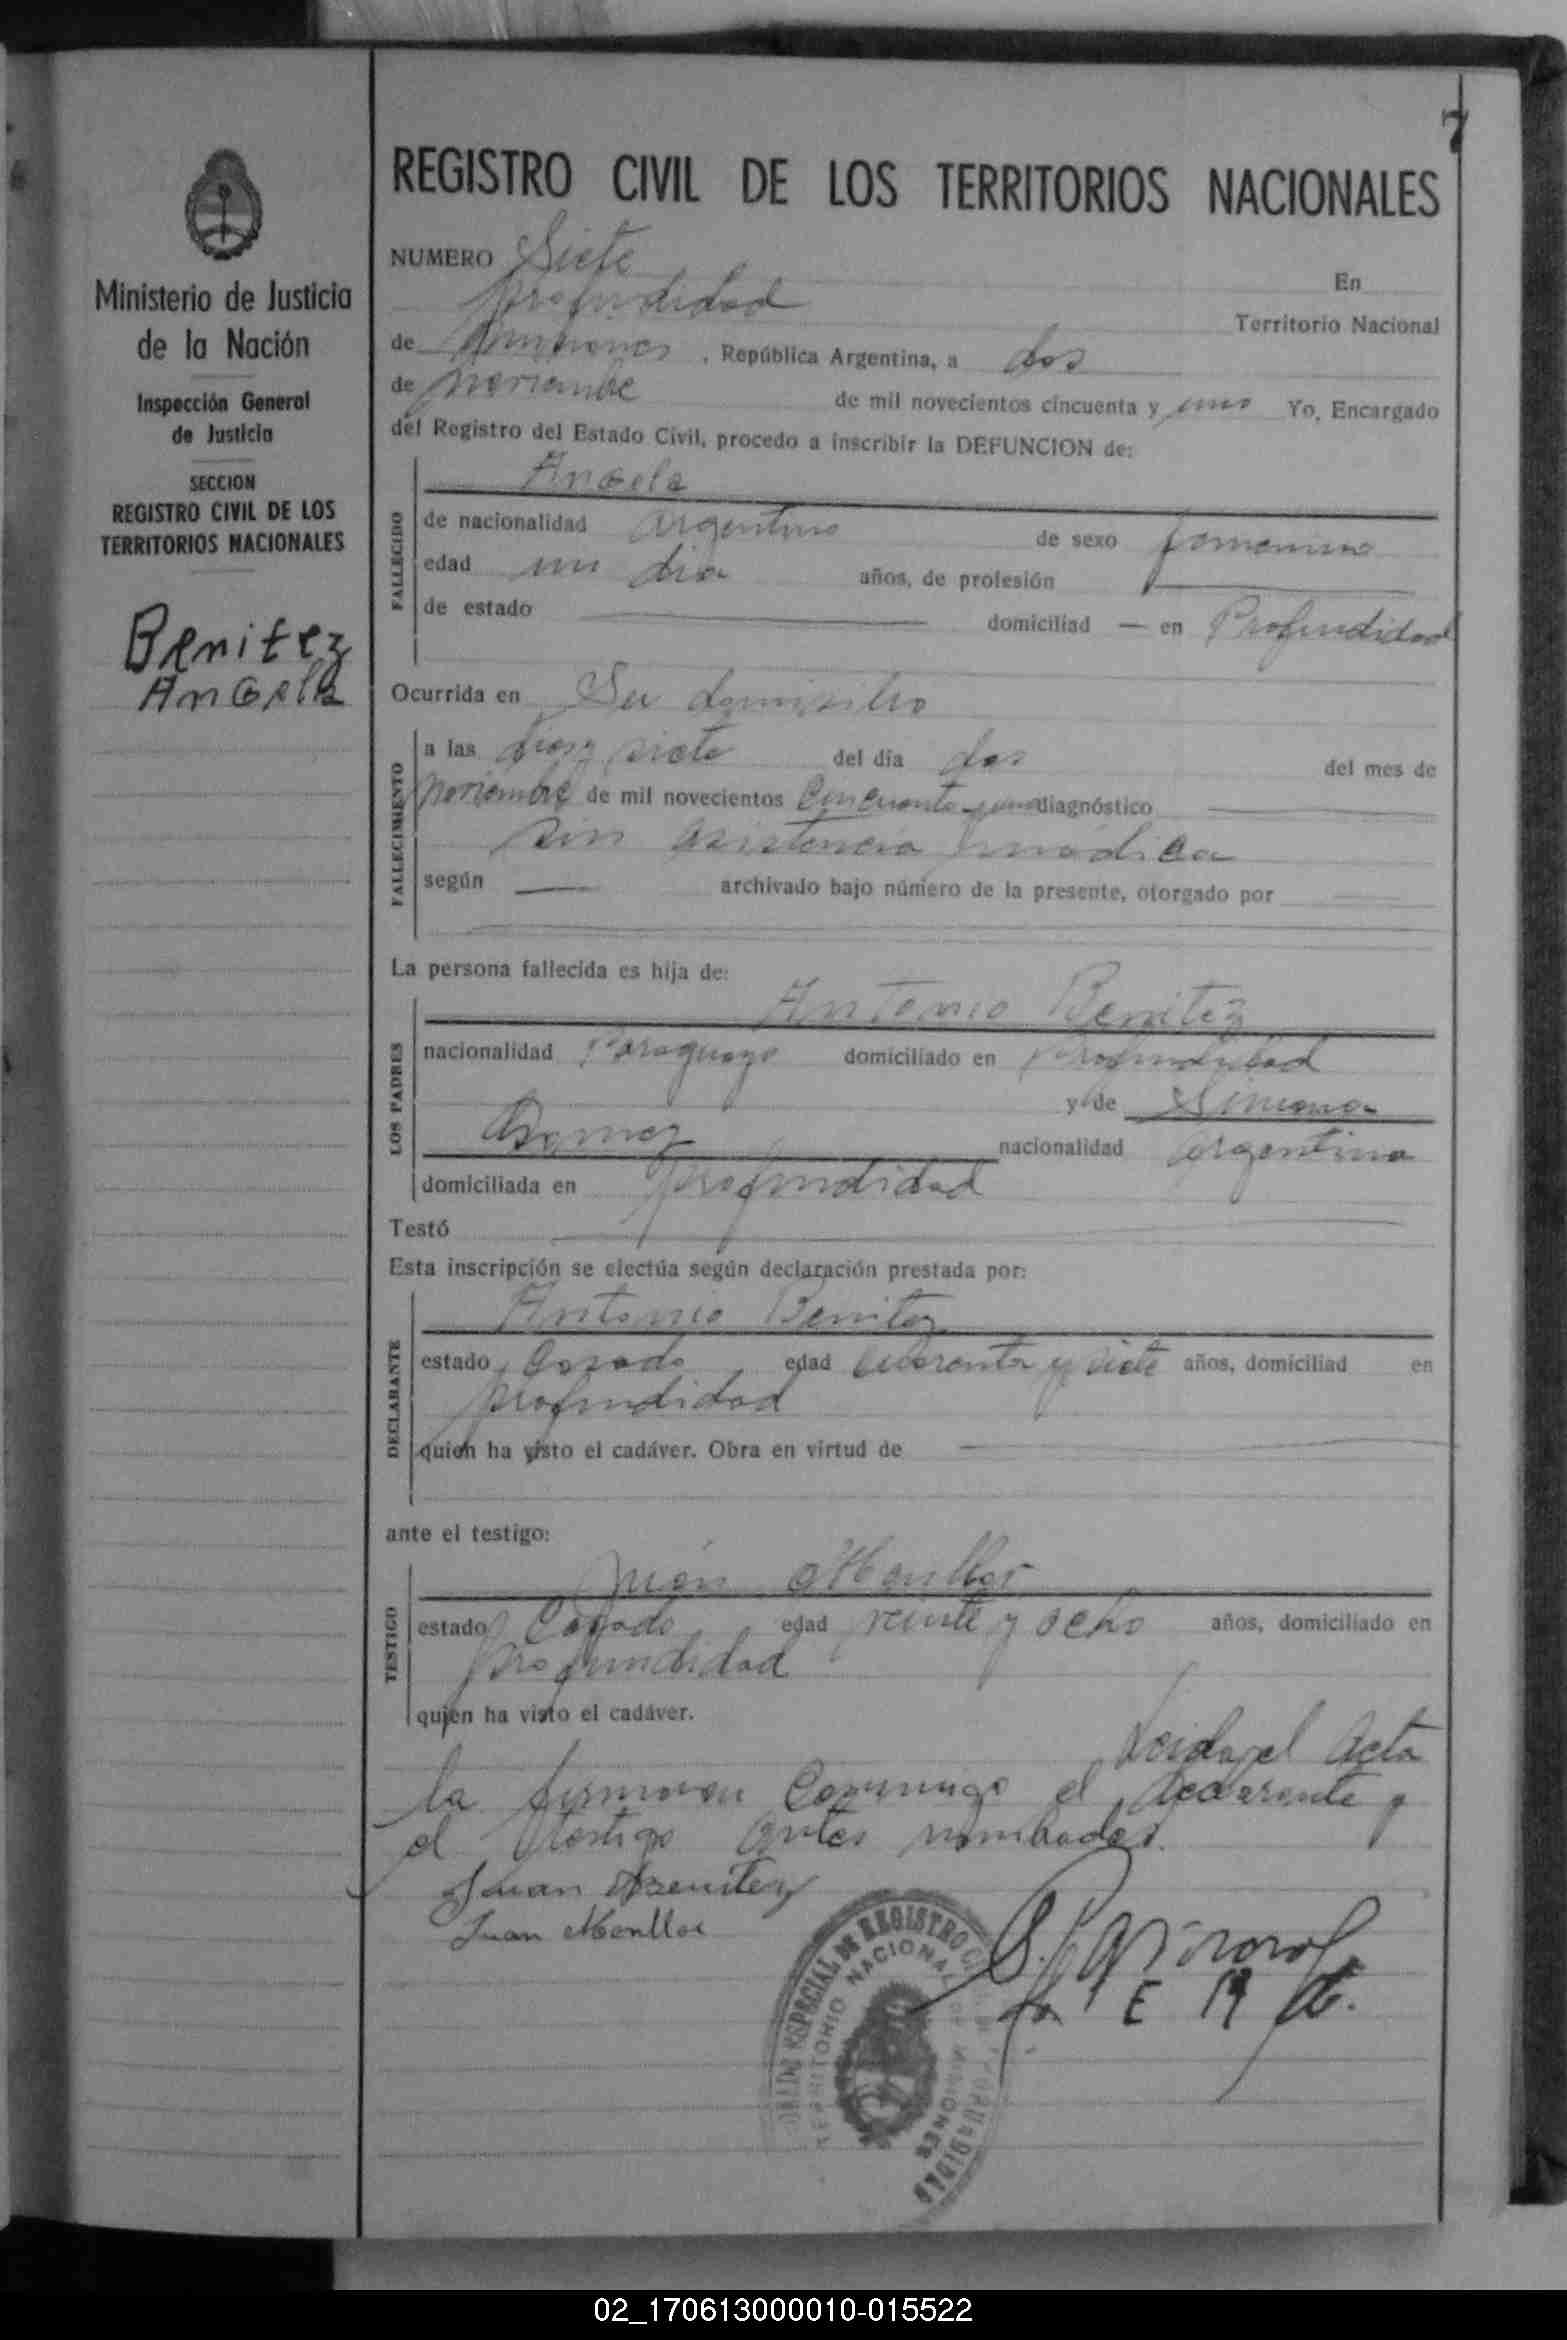 7
REGISTRO CIVIL DE LOS TERRITORIOS NACIONALES
Ministerio de Justicia
de la Nación
Inspección General
de Justicia
SECCION
REGISTRO CIVIL DE LOS
TERRITORIOS NACIONALES
Benitez
Angela
NUMERO Siete En
profundidad Territorio Nacional
de Misiones, República Argentina, a dos
de noviembre de mil novecientos cincuenta y uno Yo, Encargado
del Registro del Estado Civil, procedo a inscribir la DEFUNCION de:
FALLECIDO
Angela
de nacionalidad argentina de sexo femenino
edad un dia años, de profesión —
de estado — domiciliad — en Profundidad
Ocurrida en Su domisilio
FALLECIMIENTO
a las diez y siete del día dos del mes de
noviembre de mil novecientos Cincuenta y uno diagnóstico —
sin asistencia medica
según — archivado bajo número de la presente, otorgado por —
La persona fallecida es hija de:
LOS PADRES
Antonio Benitez
nacionalidad Paraguayo domiciliado en Profundidad
y de Simona
nacionalidad argentina
domiciliada en profundidad
Testó —
Esta inscripción se efectúa según declaración prestada por:
DECLARANTE
Antonio Benitez
estado Casado edad Cuarenta y siete años, domiciliad en
profundidad
quien ha visto el cadáver. Obra en virtud de —
ante el testigo:
TESTIGO
Juan Monllor
estado Casado edad veinte y ocho años, domiciliado en
profundidad
quien ha visto el cadáver.
Leida el Acta
la firmaron Conmigo el declarante y
el testigo antes nombrados.
Juan Benitez
Juan Monllor
ESPECIAL DE REGISTRO
TERRITORIO NACIONAL DE MISIONES
02_170613000010-015522